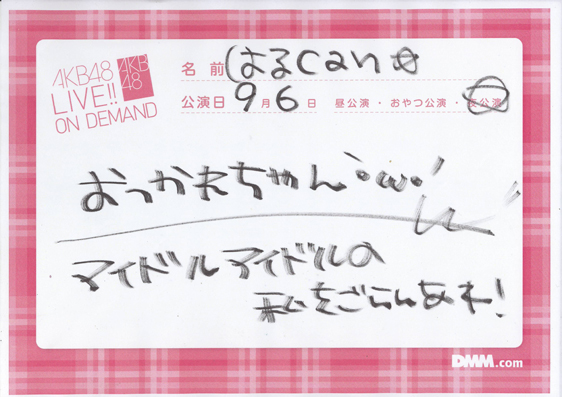 AKB48
LIVE!!
ON DEMAND
AKB
48
名前 はるcan☆
公演日 9月6日 昼公演・おやつ公演・夜公演
おつかれちゃん˙ω˙
マイドルマイドルの
私をごらんあれ!
DMM.com